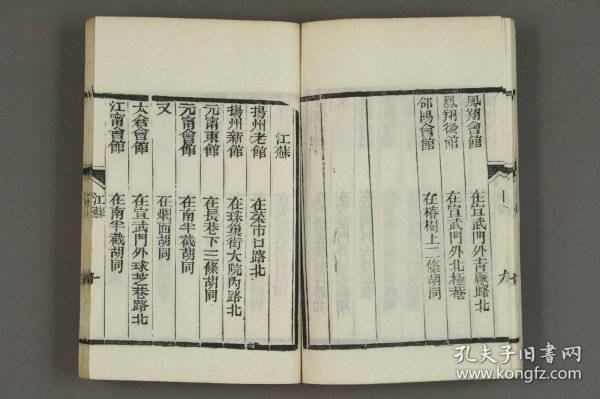 鳳翔會館 在宣武門外青廠路北
鳳翔後館 在宣武門外北極菴
郃陽會館 在椿樹上二條胡同
九
江蘇
揚州老館 在菜市口路北
揚州新館 在珠巢街大院內路北
元甯東館 在長巷下三條胡同
元甯會館 在南半截胡同
又 在爛面胡同
太倉會館 在宣武門外球芝巷路北
江甯會館 在南半截胡同
江蘇 一
孔夫子旧书网
www.kongfz.com